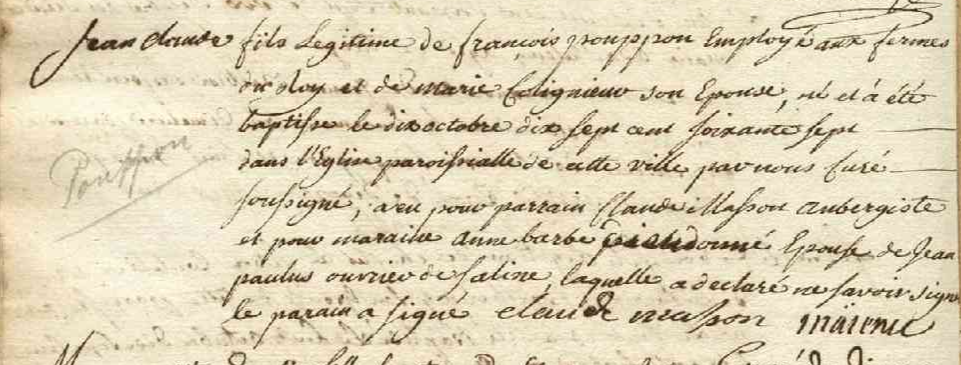 Jean claude fils Legitime de françois pouppon Employé aux fermes
du Roy et de marie Colignieur son Epouse, né et á été
baptisse le dix octobre dix sept cent soixante sept
dans l'Eglise paroissialle de cette ville par nous Curé
Pouppon
soussigné, a eu pour parrain Claude Masson aubergiste
et pour maraine anne barbe Dieudonné Epouse de Jean
paulus ouvrier de saline, laquelle a declaré ne savoir signe
le parain a signé claude masson